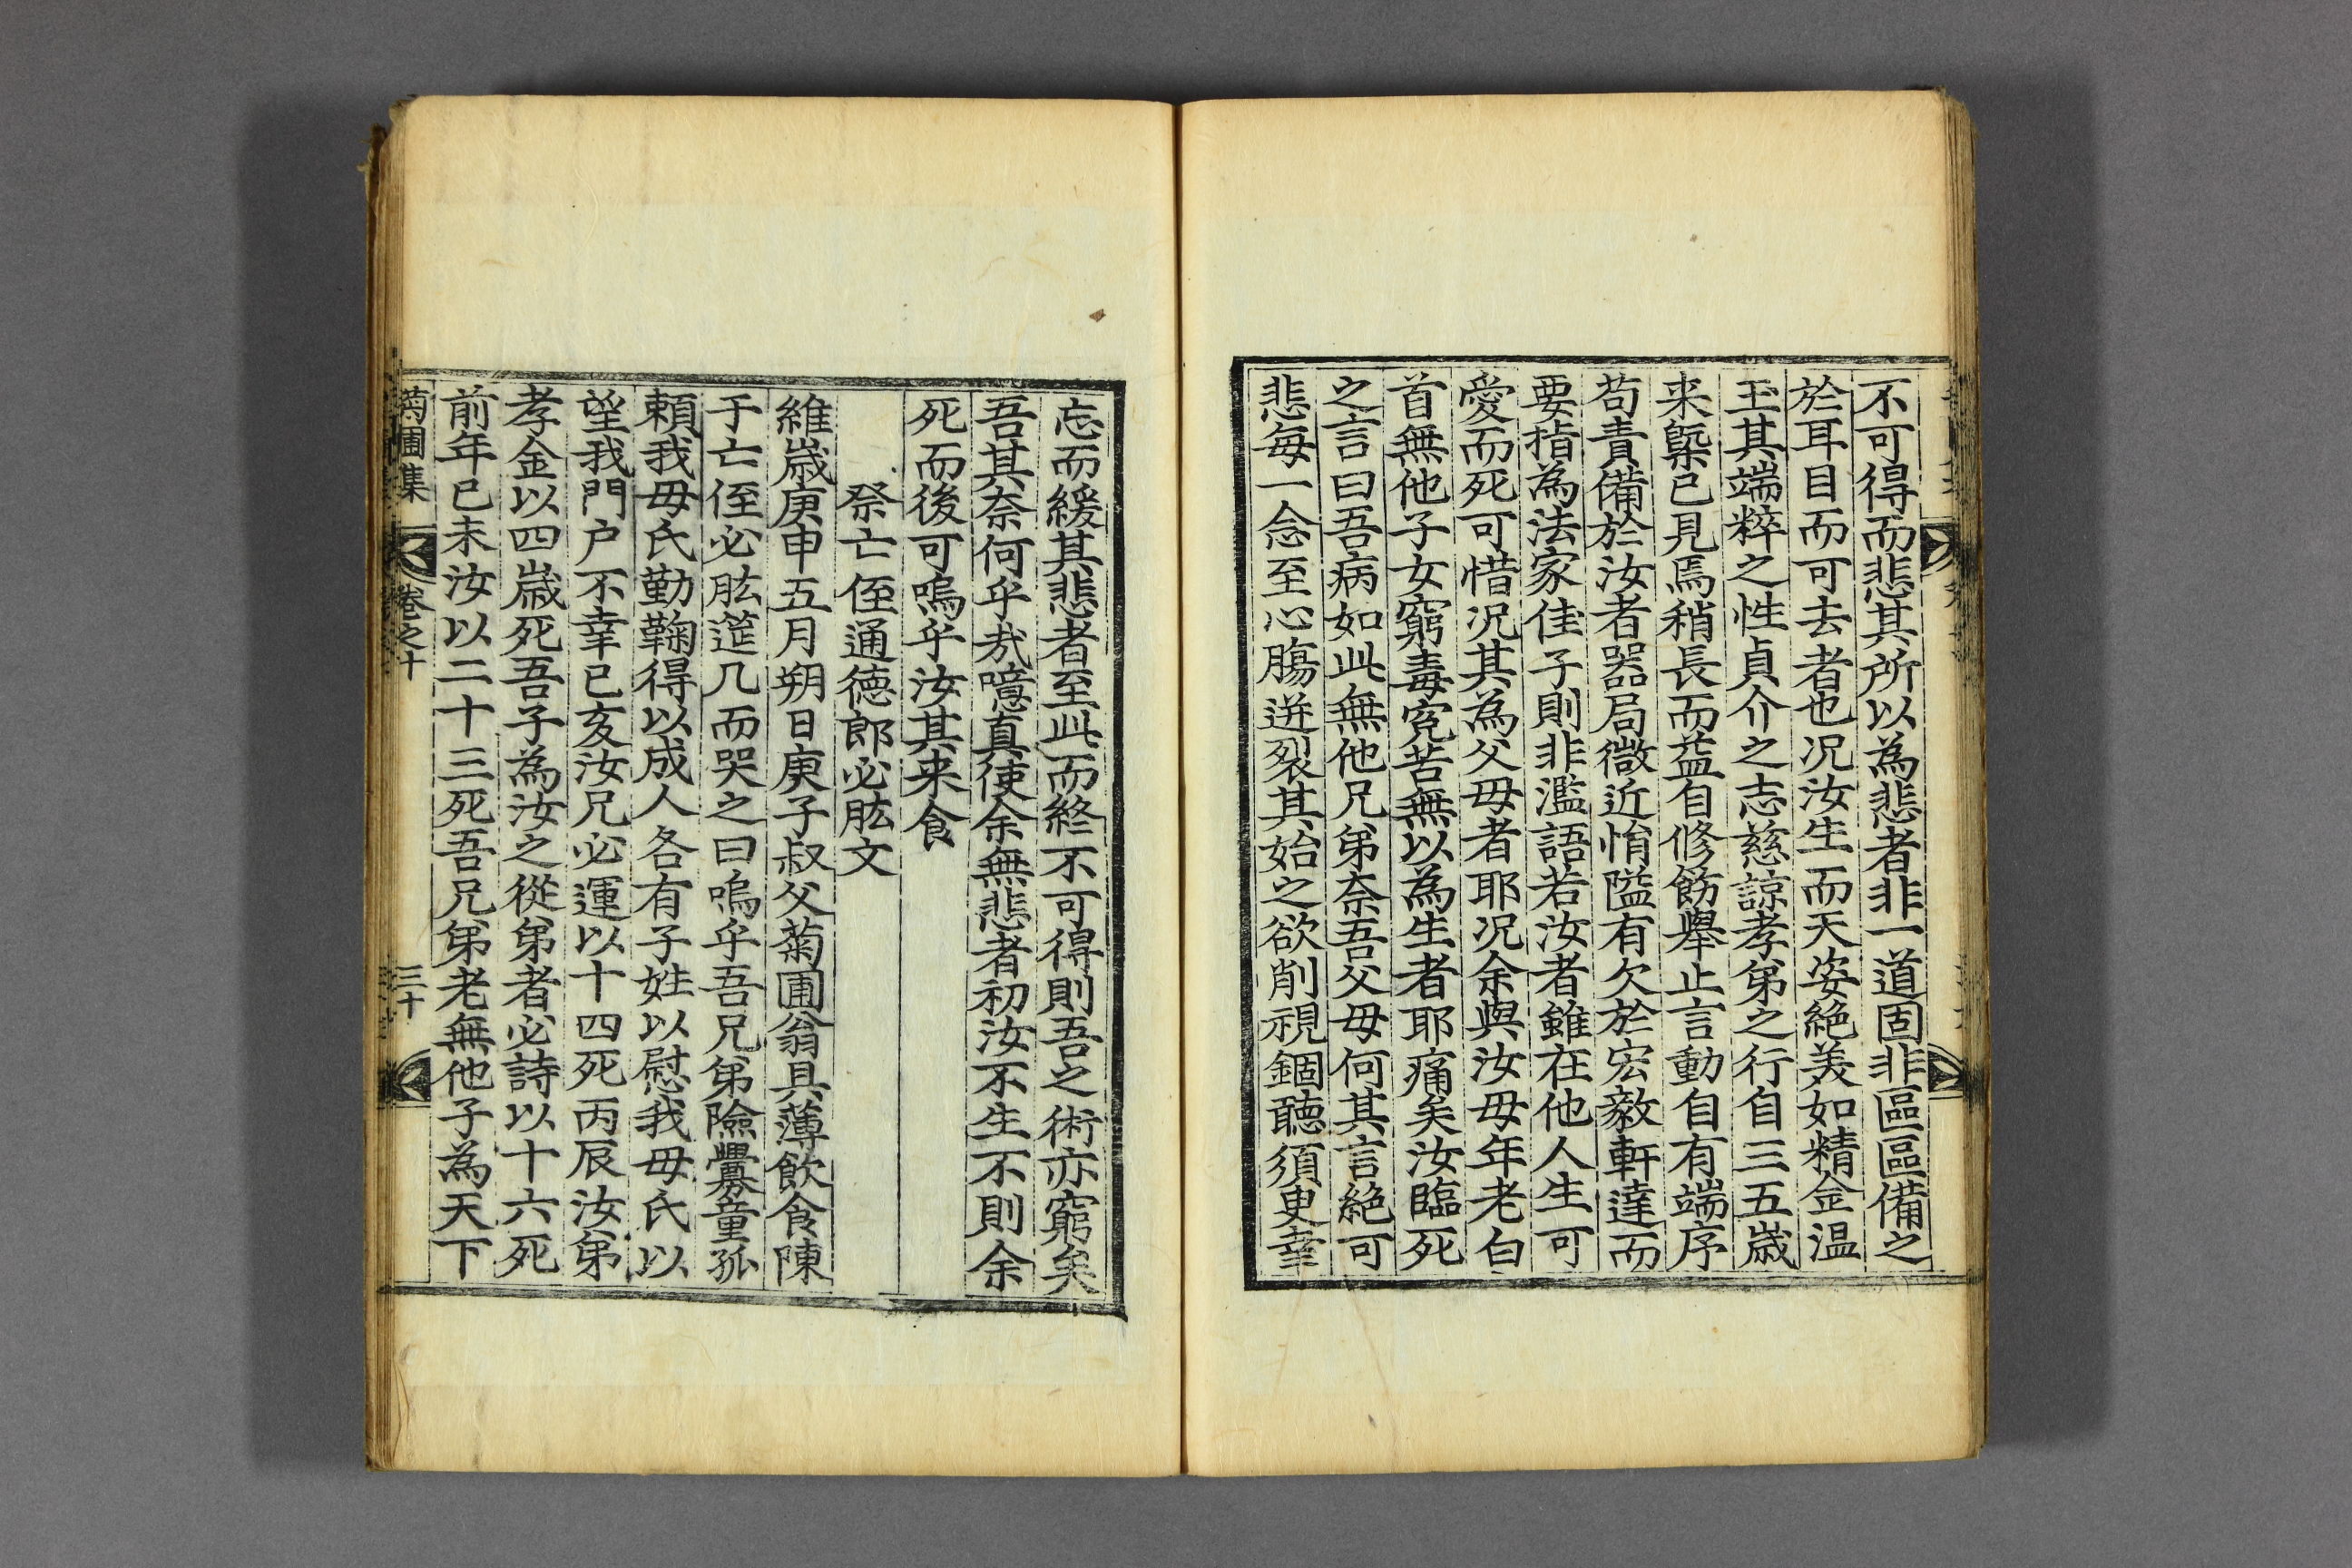 不可得而悲其所以為悲者非一道固非區區備之
於耳目而可去者也况汝生而天姿絶美如精金温
玉其端粹之性貞介之志慈諒孝弟之行自三五歲
来槩已見焉稍長而益自修飭舉止言動自有端序
苟責備於汝者器局微近悁隘有欠於宏毅軒達而
要指為法家佳子則非濫語若汝者雖在他人生可
愛而死可惜况其為父母者耶况余與汝母年老白
首無他子女窮毒寃苦無以為生者耶痛矣汝臨死
之言曰吾病如此無他兄弟奈吾父母何其言絶可
悲每一念至心膓迸裂其始之欲削視錮聽須臾幸
忘而緩其悲者至此而終不可得則吾之術亦窮矣
吾其奈何乎㢤噫真使余無悲者初汝不生不則余
死而後可嗚乎汝其来食
祭亡侄通德郎必肱文
維歲庚申五月朔日庚子叔父菊圃翁具薄飲食陳
于亡侄必肱筵几而哭之曰嗚乎吾兄弟險釁童孤
賴我母氏勤鞠得以成人各有子姓以慰我母氏以
望我門户不幸已亥汝兄必運以十四死丙辰汝弟
孝金以四歲死吾子為汝之從弟者必詩以十六死
前年已未汝以二十三死吾兄弟老無他子為天下
菊圃集 卷之十 三十